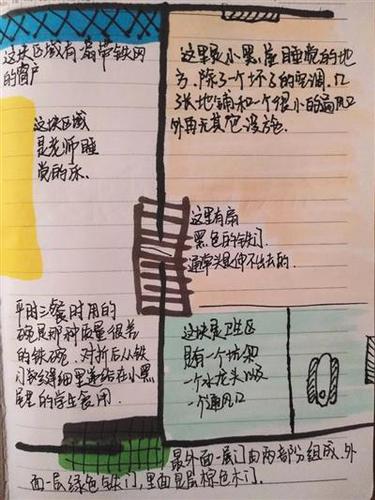 这块区域有扇带铁网
的窗户
这块区域
是老师睡
觉的床.
这里是小黑屋睡觉的地
方. 除了一个坏了的空调. 几
张地铺和一个很小的通风口
外再无其它设施.
这里有扇
黑色的铁门.
通常头是伸不出去的.
平时三餐时用的
碗是那种质量很差
的铁碗. 对折后从铁
门递给在小黑
屋里的学生食用.
这块是卫生区
只有一个坑架
一个水龙头以及
一个通风口
最外面一层门由两部分组成. 外
面一层绿色铁门, 里面是层棕色木门.